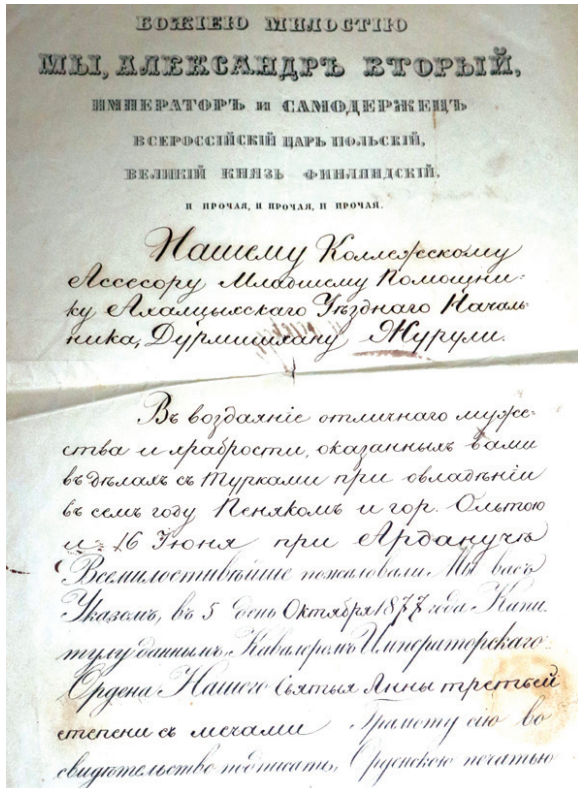 БОЖІЕЮ МИЛОСТІЮ
МЫ, АЛЕКСАНДРЪ ВТОРЫЙ,
ИМПЕРАТОРЪ И САМОДЕРЖЕЦЪ
ВСЕРОССІЙСКІЙ ЦАРЬ ПОЛЬСКІЙ,
ВЕЛИКІЙ КНЯЗЬ ФИНЛЯНДСКІЙ,
И ПРОЧАЯ, И ПРОЧАЯ, И ПРОЧАЯ.
Нашему Коллежскому
Ассесору Младшему Помощни-
ку Ахалцыхскаго Уѣзднаго Началь-
ника, Дурмишхану Журули.
Въ воздаяніе отличнаго муже-
ства и храбрости, оказанныхъ вами
въ дѣлахъ съ Турками при овладѣніи
въ семъ году Пенякомъ и гор. Ольтою
и 16 Іюня при Арданучѣ
Всемилостивѣйше пожаловали Мы васъ
Указомъ, въ 5 день Октября 1877 года Капи-
тулу даннымъ, Кавалеромъ Императорскаго
Ордена Нашего Святыя Анны третьей
степени съ мечами Грамоту сію во
свидѣтельство подписать, Орденскою печатью